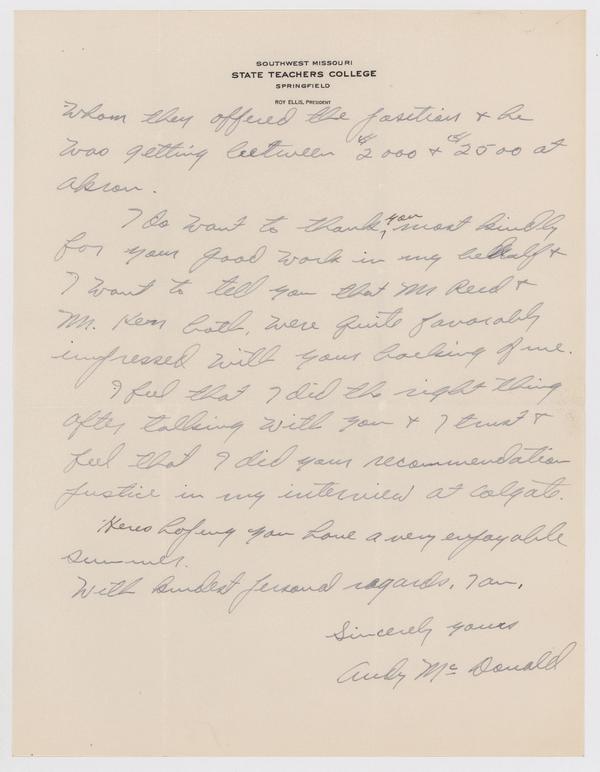 SOUTHWEST MISSOURI
STATE TEACHERS COLLEGE
SPRINGFIELD
ROY ELLIS, PRESIDENT
Whom they offered the position & he
was getting between $2000 & $2500 at
Akron.
I do want to thank you most kindly
for your good work in my behalf &
I want to tell you that Mr Reed &
Mr. Kerr both, were quite favorably
impressed with your backing of me.
I feel that I did the right thing
after talking with you & I trust &
feel that I did your recommendation
justice in my interview at Colgate.
Heres hoping you have a very enjoyable
summer.
With kindest personal regards, I am,
Sincerely yours
Andy McDonald